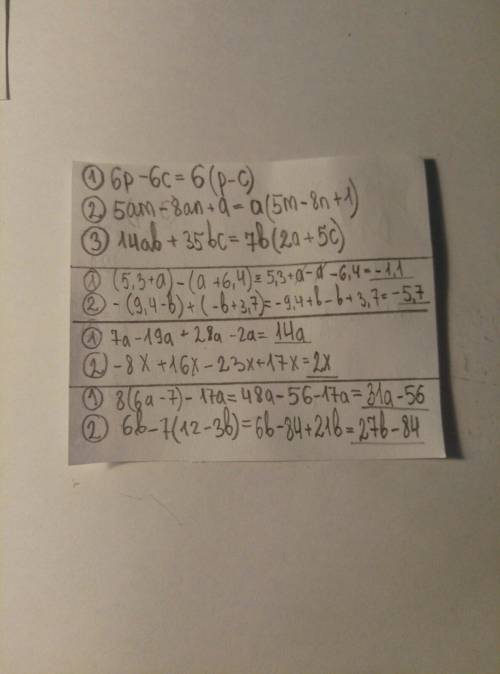 ① 6p-6c=6(p-c)
② 5am-8an+a=a(5m-8n+1)
③ 14ab+35bc=7b(2a+5c)
① (5,3+a)-(a+6,4)=5,3+a-a-6,4=-1,1
② -(9,4-b)+(-b+3,7)=-9,4+b-b+3,7=-5,7
① 7a-19a+28a-2a=14a
② -8x+16x-23x+17x=2x
① 8(6a-7)-17a=48a-56-17a=31a-56
② 6b-7(12-3b)=6b-84+21b=27b-84